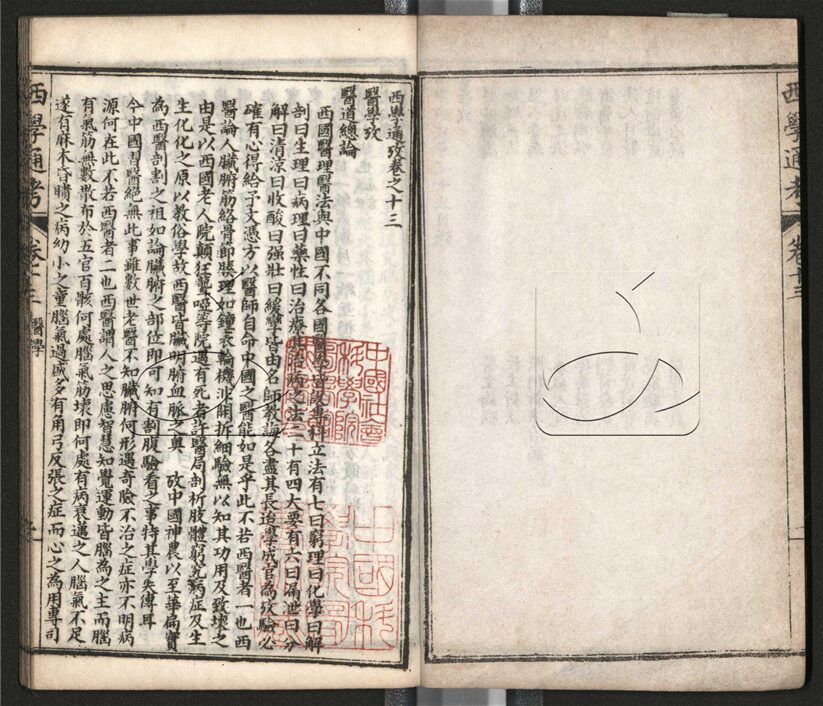 西學通攷卷之十三
醫學攷
醫道總論
西國醫理醫法與中國不同各國醫學皆設專科立法有七曰窮理曰化學曰解
剖曰生理曰病理曰藥性曰治療此治病之法二十有四大要有六曰漏泄曰分
解曰清涼曰收酸曰强壯曰緩孿皆由名師教誨各盡其長迨學成官為攷驗必
確有心得給予文憑方以醫師自命中國之醫能如是乎此不若西醫者一也西
醫論人臟腑筋絡骨節腠理如鐘表輪機非開拆細驗無以知其功用及致壞之
由是以西國老人院顛狂聾啞等院遇有死者許醫局剖析肢體窮究病症及生
生化化之原以教俗學故西醫皆臟明腑血脈之奧 攷中國神農以至華扁實
為西醫剖割之祖如論臟腑之部位即可知有割腹驗看之事特其學失傳耳
今中國習醫絕無此事雖數世老醫不知臟腑何形遇奇險不治之症亦不明病
源何在此不若西醫者二也西醫謂人之思慮智慧知覺運動皆腦為之主而腦
有氣筋無數散布於五官百骸何處腦氣筋壞即何處有病衰邁之人腦氣不足
遂有麻木昏聵之病幼小之童腦氣過盛多有角弓反張之症而心之為用專司
西學通考 卷十三 醫學
中國社會科學院
西學通考 卷十三